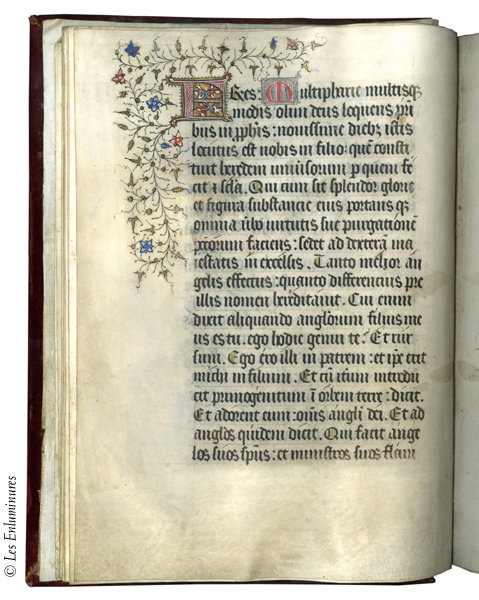 FRes: Multipharie multisq
modis olim deus loquens pri
bus in pphis: nouissime dieb3 istis
locutus est nobis in filio: quē consti
tuit heredem uniuersorum p quem fe
cit ⁊ scla. Qui cum sit splendor glorie
et figura substancie eius portans q3
omnia ūbo uirtutis sue purgationē
pctorum faciens: sedet ad dexterā ma
iestatis in excelsis. Tanto melior an
gelis effectus: quanto differencius pre
illis nomen hereditauit. Cui enim
dixit aliquando anglorum filius me
us es tu. ego hodie genui te. Et rur
sum. Ego ero illi in patrem: et ip̄e erit
michi in filium. Et cū itum introdu
cit primogenitum ī orbem terre: dicit.
Et adorent eum: om̄s angli dei. Et ad
anglos quidem dicit. Qui facit ange
los suos spūs: et ministros suos flam
© Les Enluminures